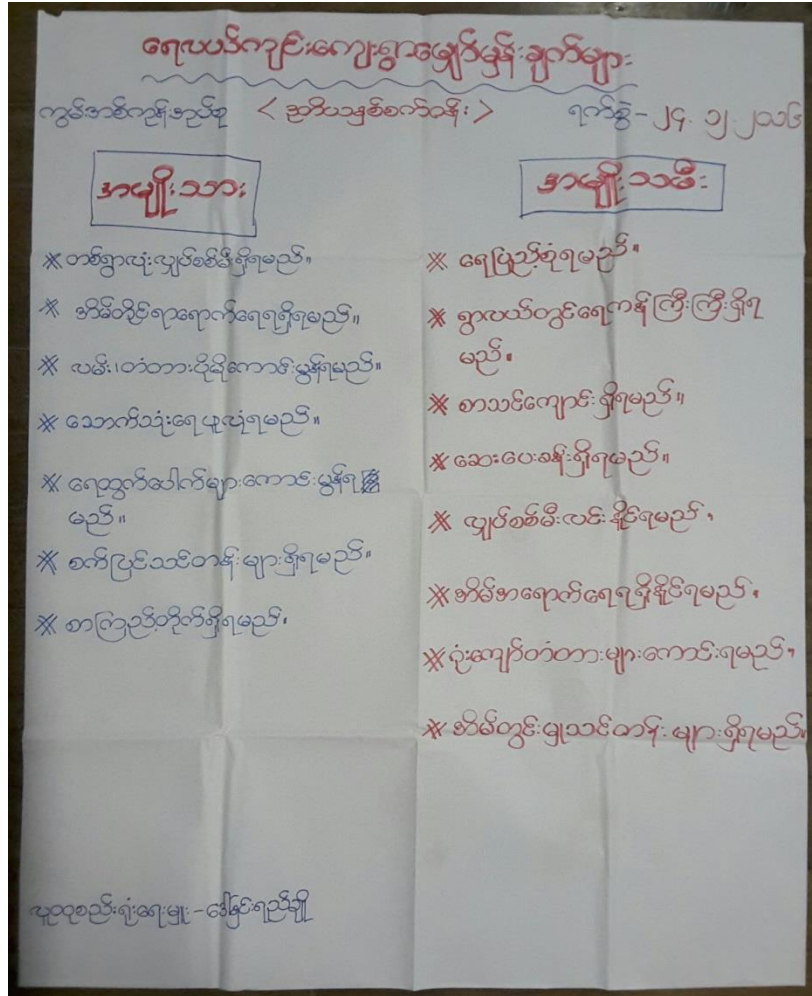 ရေလယ်ကျင်းကျေးရွာမျှော်မှန်းချက်များ
ကွမ်းအစ်ကုန်းအုပ်စု < ဥတိပဿစ်စက်ဝန်း > ရက်စွဲ - ၂၄. ၁၂. ၂၀၁၆
အမျိုးသား
※ တစ်ရွာလုံးလျှပ်စစ်မီးရှိရမည်။
※ အိမ်တိုင်ရာရောက်ရေရရှိရမည်။
※ လမ်း၊တံတားပိုမိုကောင်းမွန်ရမည်။
※ သောက်သုံးရေဖူလုံရမည်။
※ ရေထွက်ပေါက်များကောင်းမွန်ရ
မည်။
※ စက်ပြင်သင်တန်းများရှိရမည်။
※ စာကြည့်တိုက်ရှိရမည်။
အမျိုးသမီး
※ ရေပြည့်စုံရမည်။
※ ရွာလယ်တွင်ရေကန်ကြီးကြီးရှိရ
မည်။
※ စာသင်ကျောင်းရှိရမည်။
※ ဆေးပေးခန်းရှိရမည်။
※ လျှပ်စစ်မီးလင်းနိုင်ရမည်။
※ အိမ်အရောက်ရေရရှိနိုင်ရမည်။
※ ဂုံးကျော်တံတားများကောင်းရမည်။
※ အိမ်တွင်းမှုသင်တန်းများရှိရမည်။
လူထုစည်းရုံးရေးမှူး - ဒေါ်ခြင်းရည်ချို